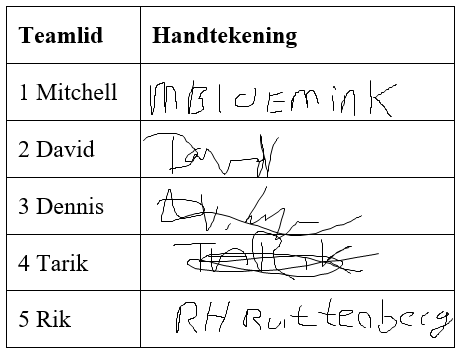 Teamlid Handtekening
1 Mitchell MBloemink
2 David David
3 Dennis
4 Tarik Tarik
5 Rik RH Ruittenberg